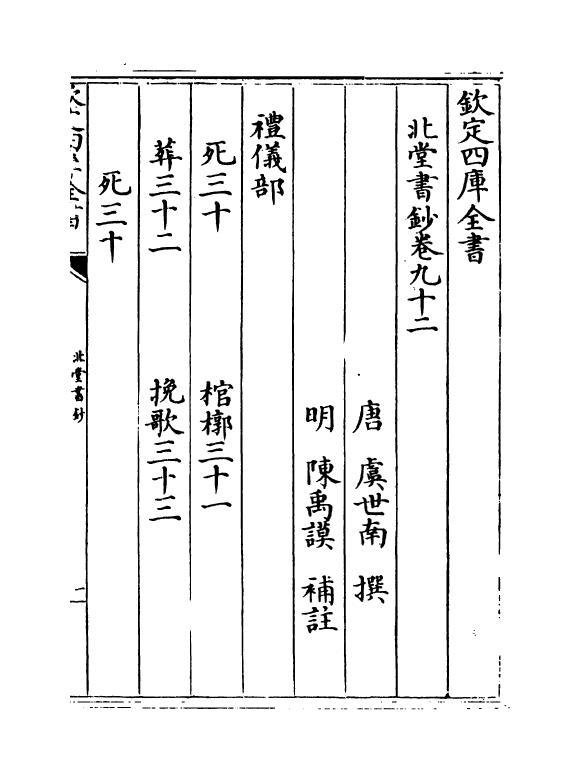 欽定四庫全書
北堂書鈔卷九十二
唐 虞世南 撰
明 陳禹謨 補註
禮儀部
死三十 棺槨三十一
葬三十二 挽歌三十三
死三十
北堂書鈔